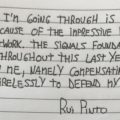 I'M GOING THROUGH IS
CAUSE OF THE IMPRESSIVE
WORK. THE SIGNALS FOUNDA
THROUGHOUT THIS LAST YE
ME, NAMELY COMPENSATI
IRELESSLY TO DEFEND MY
RUI PINTO